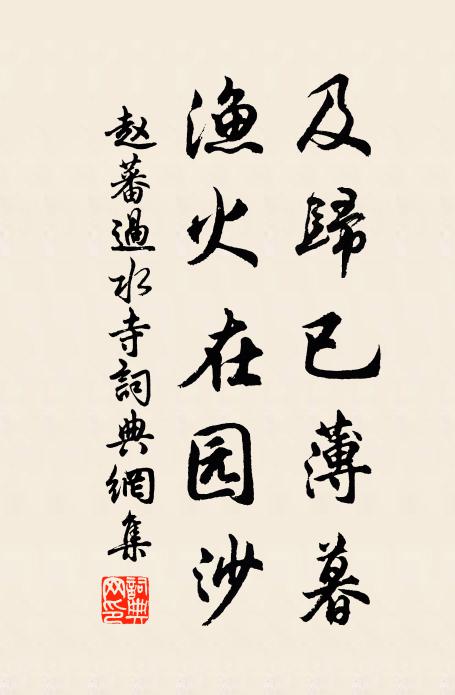 及歸已薄暮
漁火在园沙
赵蕃過水寺詞典網集
詞典网印